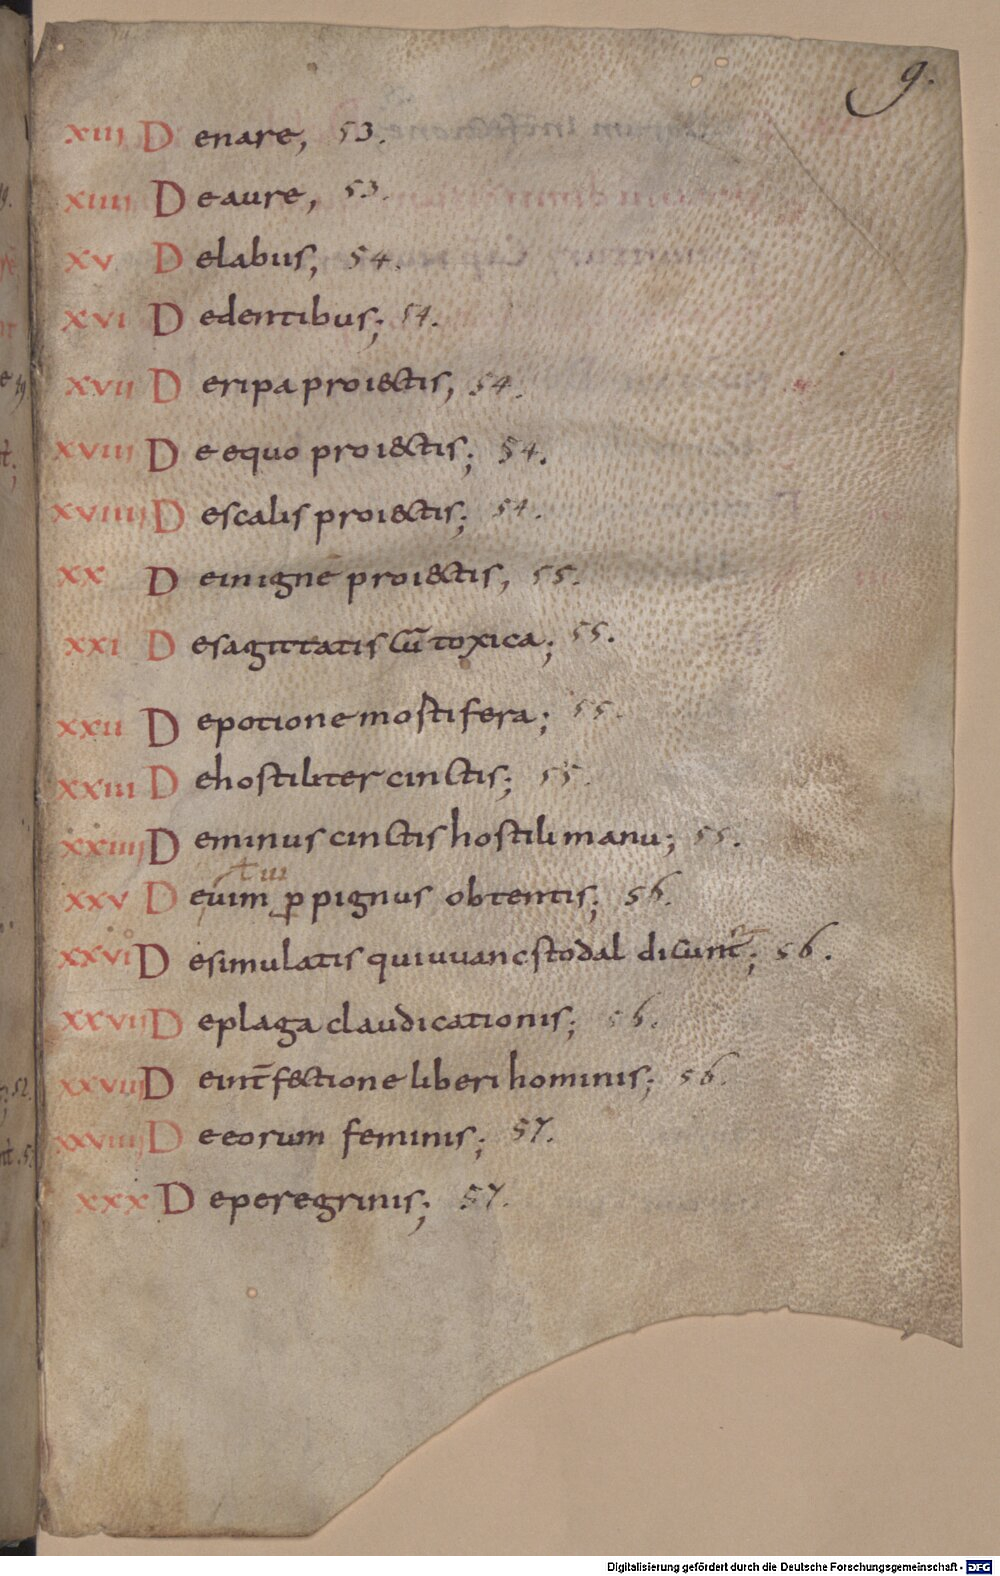 9.
XIII De nare, 53.
XIIII De aure, 53.
XV De labiis, 54.
XVI De dentibus; 54.
XVII De ripa proiectis, 54.
XVIII De equo proiectis; 54.
XVIIII De scalis proiectis; 54.
XX De in igne proiectis, 55.
XXI De sagittatis cū toxica; 55.
XXII De potione mostifera; 55.
XXIII De hostiliter cinctis; 55.
XXIIII De minus cinctis hostili manu; 55.
XXV De uim ꝑ pignus obtentis; 56.
XXVI De simulatis qui uuancstodal dicunt; 56.
XXVII De plaga claudicationis; 56.
XXVIII De int̄fectione liberi hominis; 56.
XXVIIII De eorum feminis; 57.
XXX De peregrinis; 57.
Digitalisierung gefördert durch die Deutsche Forschungsgemeinschaft - DFG